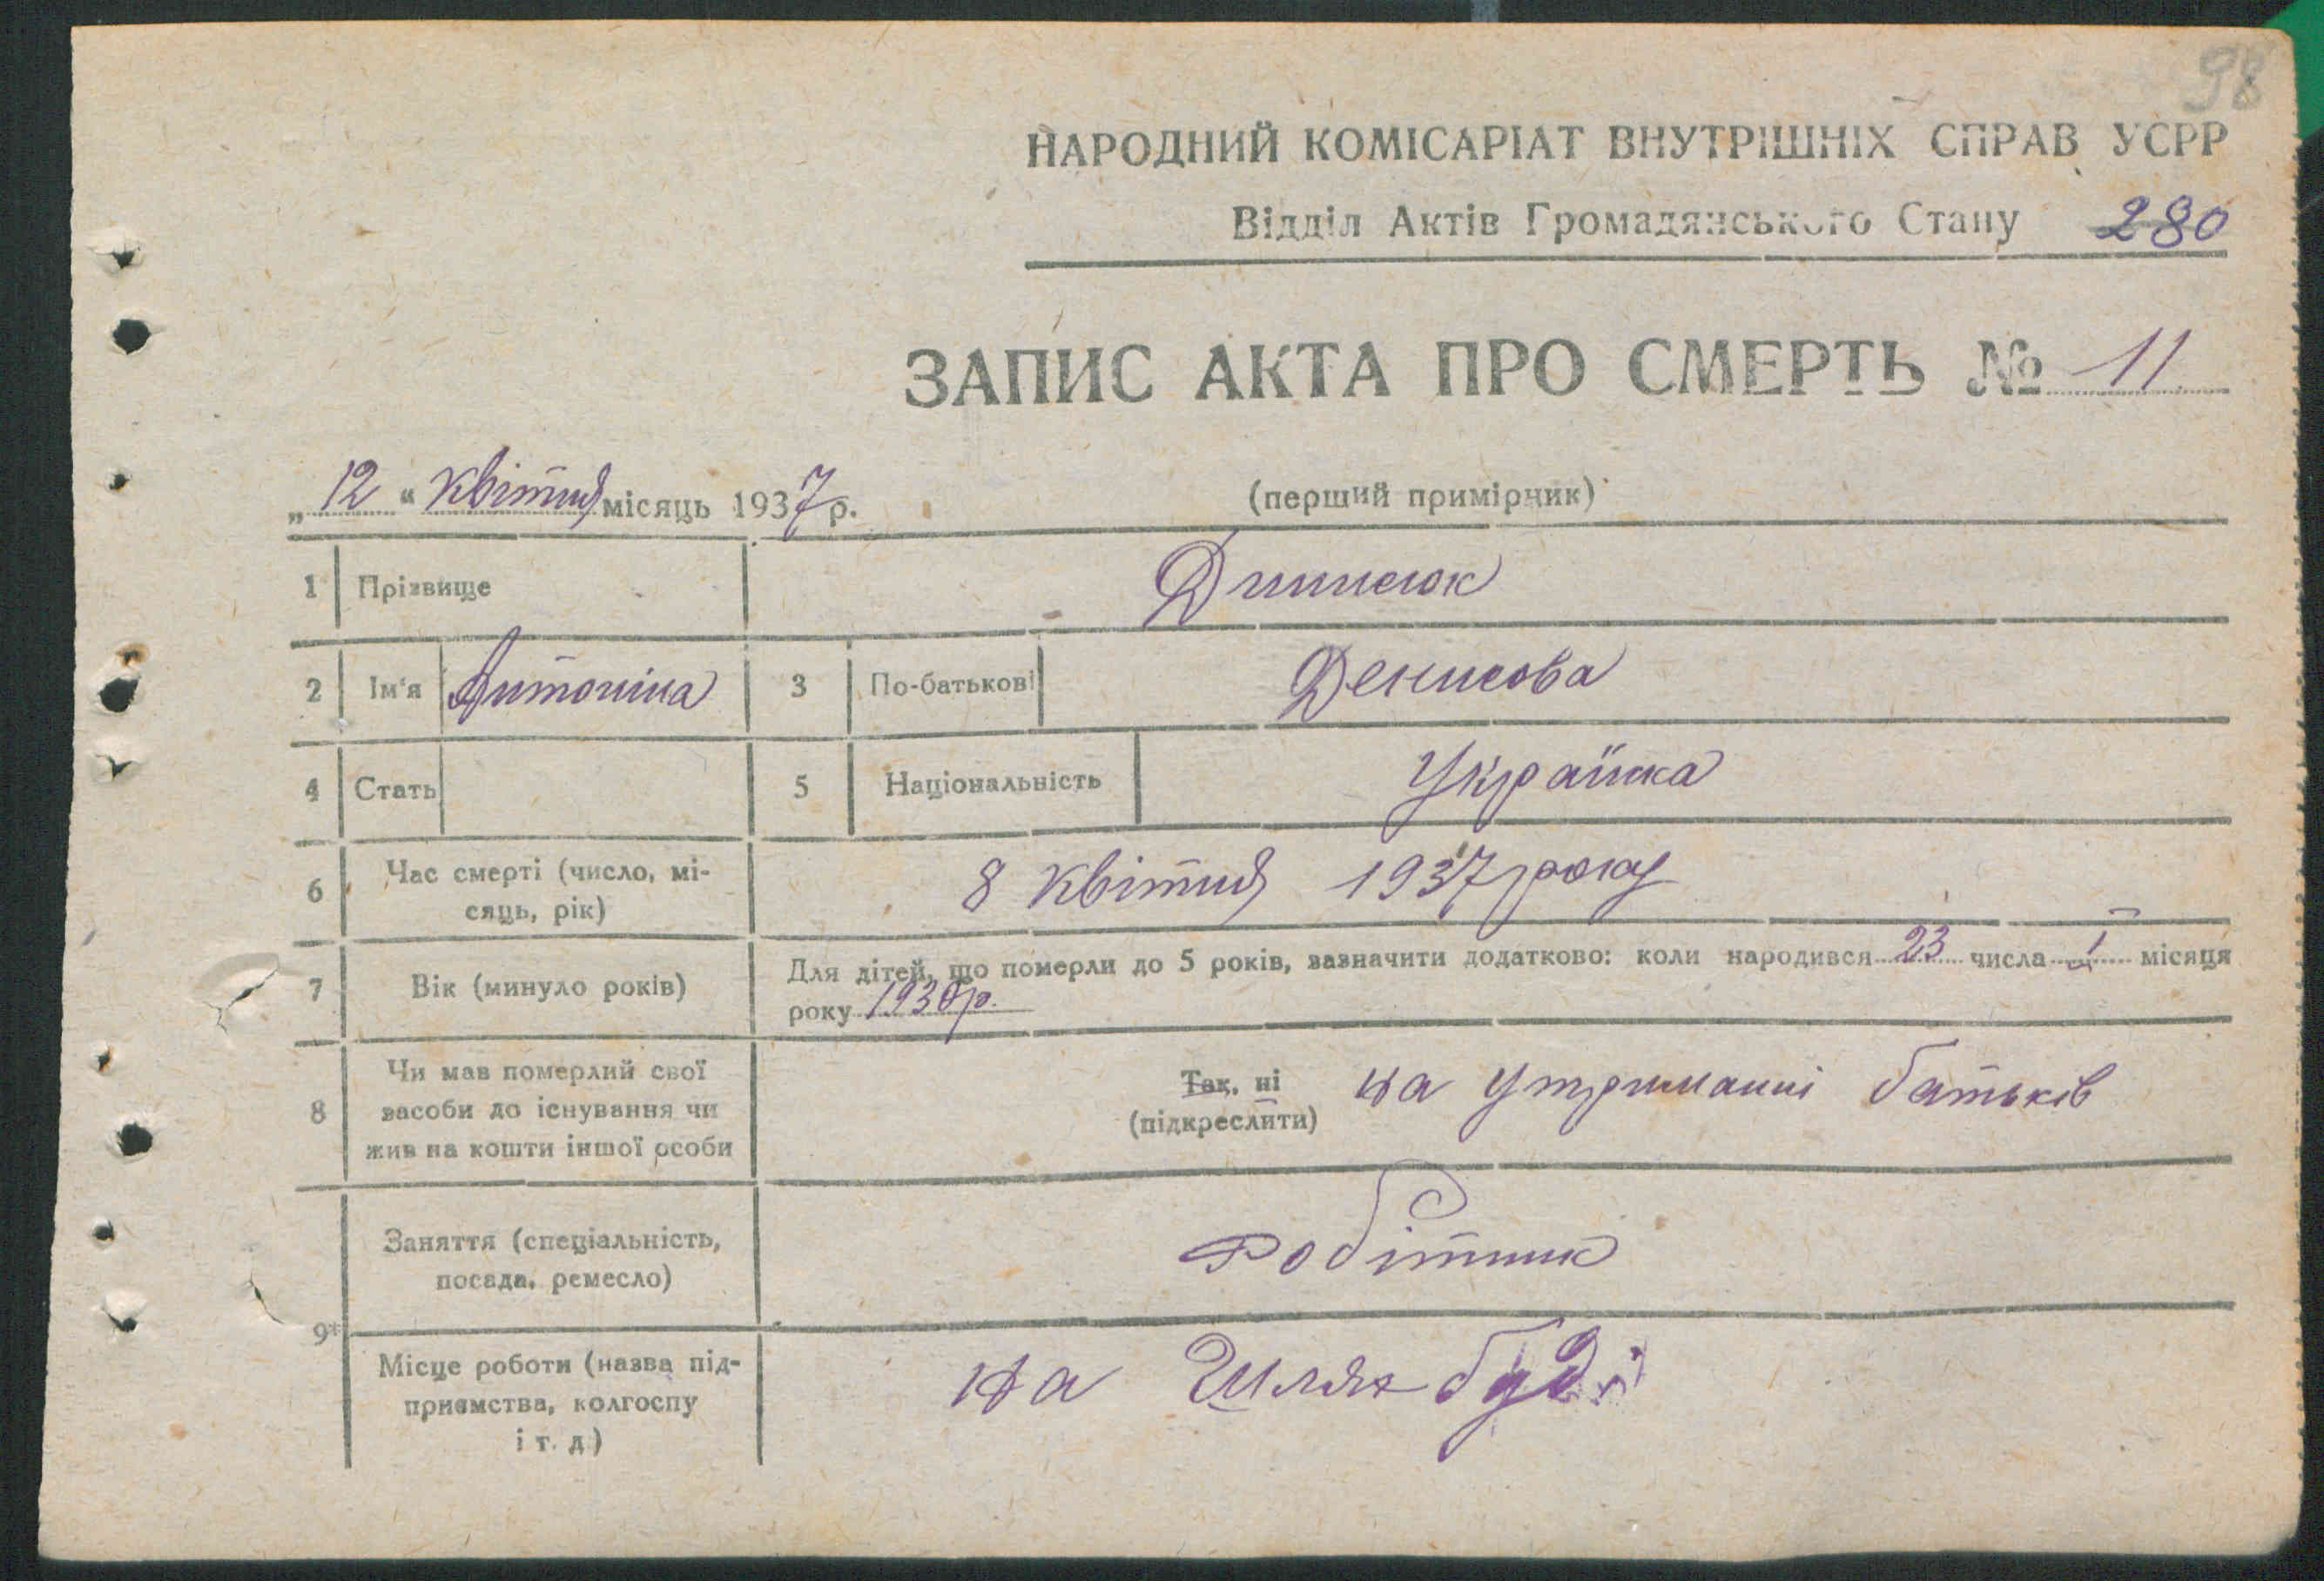 98
НАРОДНИЙ КОМІСАРІАТ ВНУТРІШНІХ СПРАВ УСРР
Відділ Актів Громадянського Стану 280
ЗАПИС АКТА ПРО СМЕРТЬ № 11
„ 12 “ квітня місяць 1937 р.
(перший примірник)
1 Прізвище
2 Ім'я Антоніна 3 По-батькові Денисова
4 Стать 5 Національність Українка
6 Час смерті (число, мі-
сяць, рік) 8 квітня 1937 року
7 Вік (минуло років) Для дітей, що померли до 5 років, зазначити додатково: коли народився 23 числа місяця
року
8 Чи мав померлий свої
засоби до існування чи
жив на кошти іншої особи
Так, ні на утриманні батьків
(підкреслити)
9* Заняття (спеціальність,
посада, ремесло) робітник
Місце роботи (назва під-
приємства, колгоспу
і т. д.) на